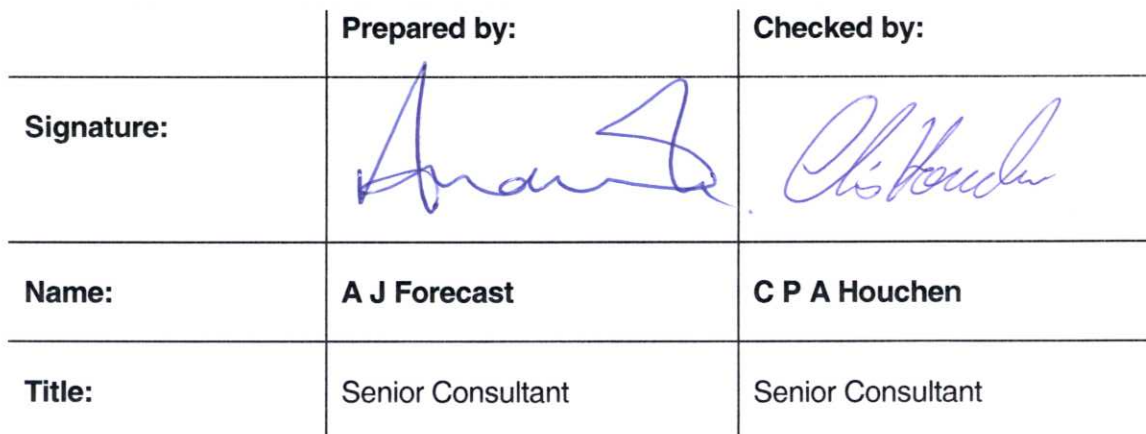 Prepared by: Checked by:
Signature: Chris Houchen
Name: A J Forecast C P A Houchen
Title: Senior Consultant Senior Consultant